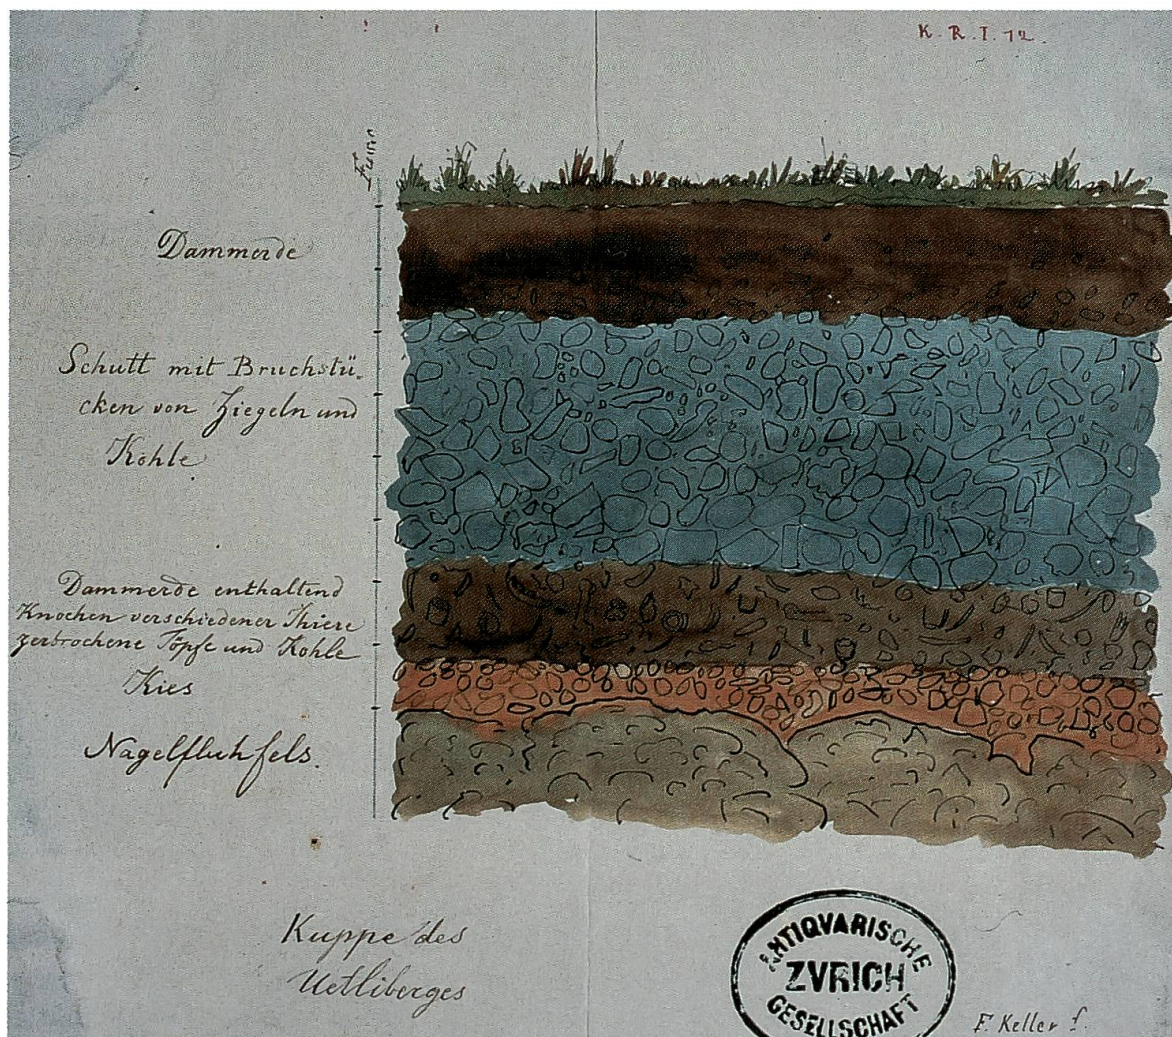 K. R. I. 12.
Dammerde
Schutt mit Bruchstü-
cken von Ziegeln und
Kohle
Dammerde enthaltend
Knochen verschiedener Thiere
zerbrochene Töpfe und Kohle
Kies
Nagelfluhfels.
Kuppe des
Uetliberges
ANTIQVARISCHE
ZVRICH
GESELLSCHAFT
F. Keller f.